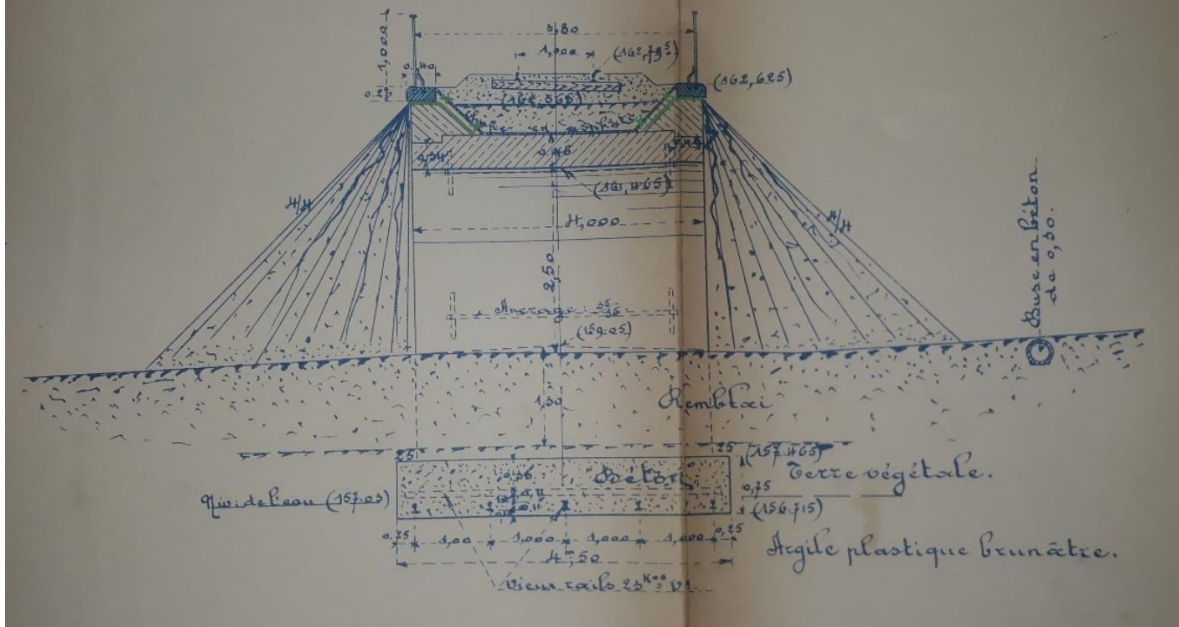 3,80
1,000
1,000
(162,79⁵)
0.40
(162,625)
0.25
(162,565)
Chape en asphalte
0,34
0,45
(161,465)
4/4
4/4
4,000
2,50
Ancrage
(159.05)
Buse en béton
de 0,30.
1,30
Remblai
25
25
(157.465)
0,36
Béton
Terre végétale.
0,75
Niv: de l'eau (157.05)
0,11
0,11
(156.715)
0,25
1,00
1,000
1,000
1,000
0,25
4ᵐ,50
Argile plastique brunâtre.
Vieux rails 23ᴷ⁰⁰